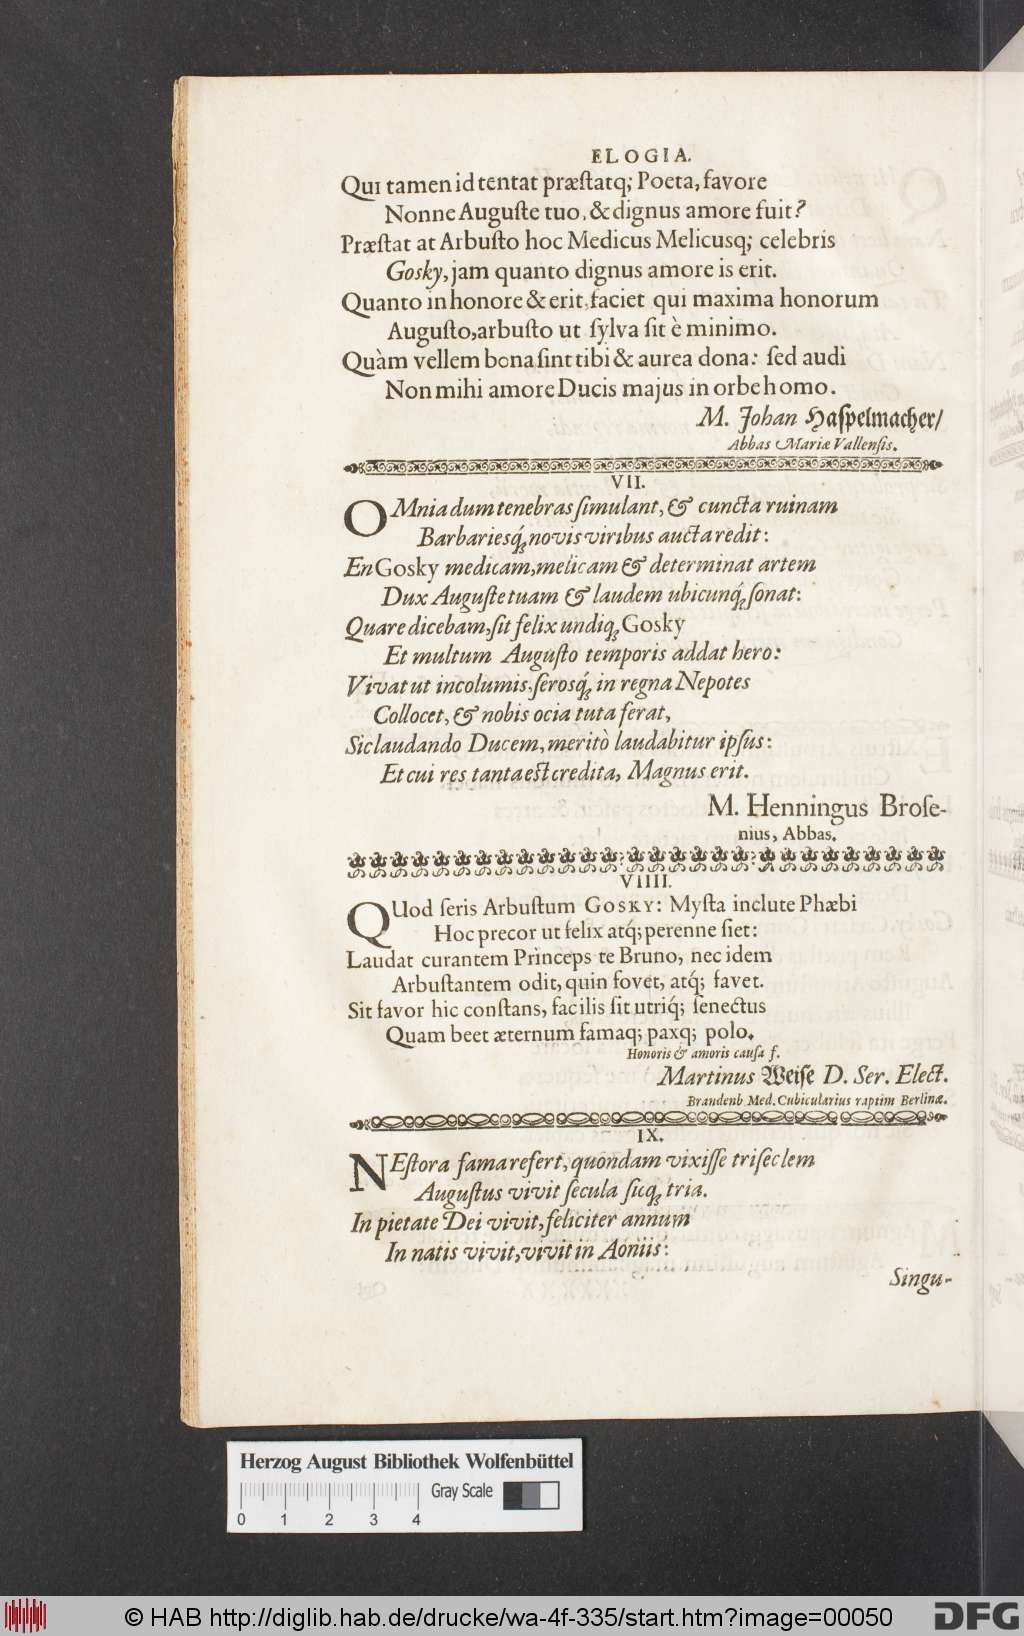 ELOGIA.
Qui tamen id tentat præſtatq́; Poeta, favore
Nonne Auguſte tuo, & dignus amore fuit?
Præſtat at Arbuſto hoc Medicus Melicusq́; celebris
Gosky, jam quanto dignus amore is erit.
Quanto in honore & erit, faciet qui maxima honorum
Auguſto, arbuſto ut ſylva ſit è minimo.
Quàm vellem bona ſint tibi & aurea dona: ſed audi
Non mihi amore Ducis majus in orbe homo.
M. Johan Haſpelmacher/
Abbas Mariæ Vallenſis.
VII.
OMnia dum tenebras ſimulant, & cuncta ruinam
Barbariesq́; novis viribus aucta redit:
En Gosky medicam, melicam & determinat artem
Dux Auguſte tuam & laudem ubicunq́; ſonat:
Quare dicebam, ſit felix undiq; Gosky
Et multum Auguſto temporis addat hero:
Vivat ut incolumis, ſerosq́; in regna Nepotes
Collocet, & nobis ocia tuta ferat,
Sic laudando Ducem, meritò laudabitur ipſus:
Et cui res tanta eſt credita, Magnus erit.
M. Henningus Broſe-
nius, Abbas.
VIIII.
QUod ſeris Arbuſtum Gosky: Myſta inclute Phæbi
Hoc precor ut felix atq́; perenne ſiet:
Laudat curantem Princeps te Bruno, nec idem
Arbuſtantem odit, quin fovet, atq́; favet.
Sit favor hic conſtans, facilis ſit utriq́; ſenectus
Quam beet æternum famaq; paxq; polo.
Honoris & amoris cauſa f.
Martinus Weiſe D. Ser. Elect.
Brandenb Med. Cubicularius raptim Berlinæ.
IX.
NEſtora fama refert, quondam vixiſſe triſeclem
Auguſtus vivit ſecula ſicq; tria.
In pietate Dei vivit, feliciter annum
In natis vivit, vivit in Aoniis:
Singu-
Herzog August Bibliothek Wolfenbüttel
Gray Scale
0 1 2 3 4
© HAB http://diglib.hab.de/drucke/wa-4f-335/start.htm?image=00050
DFG